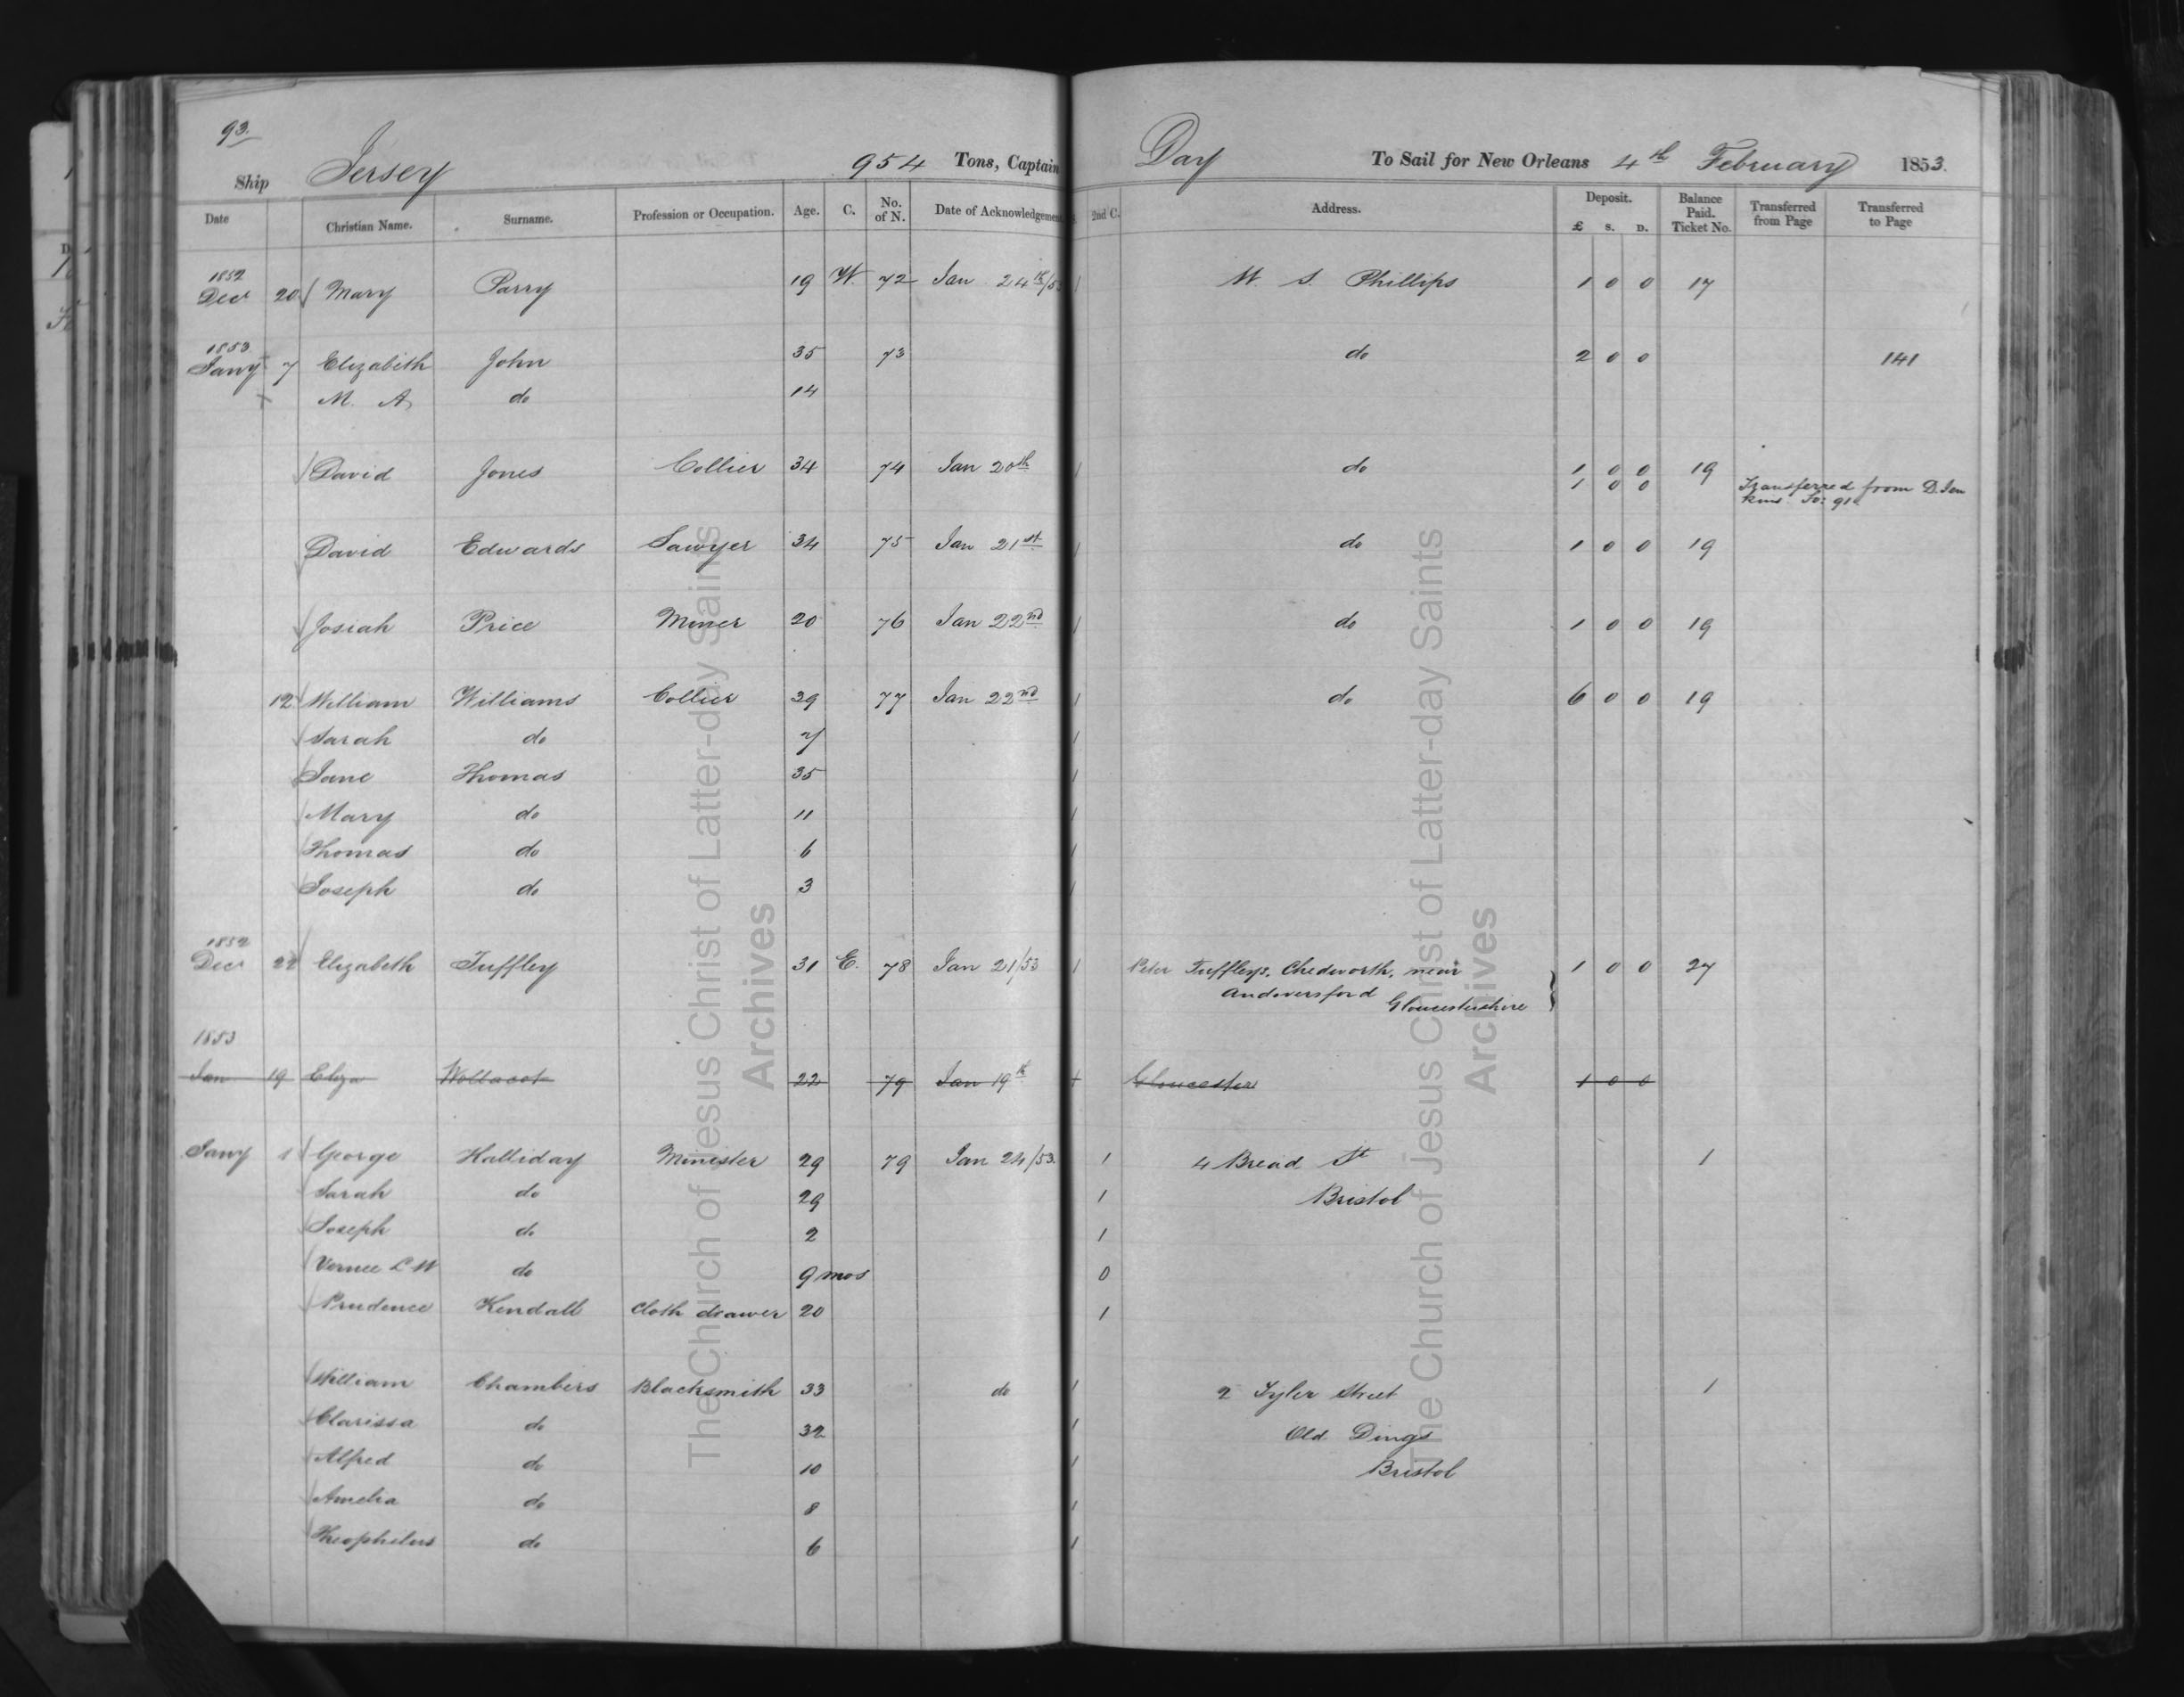 93.
Ship Jersey 954 Tons, Captain Day To Sail for New Orleans 4th February 1853.
Date Christian Name. Surname. Profession or Occupation. Age. C. No. of N. Date of Acknowledgemen 2nd C. Address. Deposit. £ S. D. Balance Paid. Ticket No. Transferred from Page Transferred to Page
1852
Decr 20 Mary Parry 19 W. 72 Jan 24th/5 1 W. S. Phillips 1 0 0 17
1853
Jany 7 Elizabeth John 35 73 do 2 0 0 141
M. A. do 14
David Jones Collier 34 74 Jan 20th 1 do 1 0 0 19
1 0 0 Transferred from D. Jen
kins Fo: 91
David Edwards Sawyer 34 75 Jan 21st 1 do 1 0 0 19
Josiah Price Miner 20 76 Jan 22nd 1 do 1 0 0 19
12 William Williams Collier 29 77 Jan 22nd 1 do 6 0 0 19
Sarah do 1
Jane Thomas 35 1
Mary do 11 1
Thomas do 6 1
Joseph do 3 1
1852
Decr 22 Elizabeth Tuffley 31 E. 78 Jan 21/53 1 Peter Tuffleys, Chedworth, near 1 0 0 27
Andoversford
Gloucestershire
1853
Jan 19 Eliza Wollacot 22 79 Jan 19th 1 Gloucester 1 0 0
Jany 1 George Halliday Minester 29 79 Jan 24/53. 1 4 Bread St 1
Sarah do 29 1 Bristol
Joseph do 2 1
Vernee L W do 9 mos 0
Prudence Kendall Cloth drawer 20 1
William Chambers Blacksmith 33 do 1 2 Tyler Street 1
Clarissa do 32 1 Old Dings
Alfred do 10 1 Bristol
Amelia do 8 1
Theophelus do 6 1
The Church of Jesus Christ of Latter-day Saints
Archives
The Church of Jesus Christ of Latter-day Saints
Archives